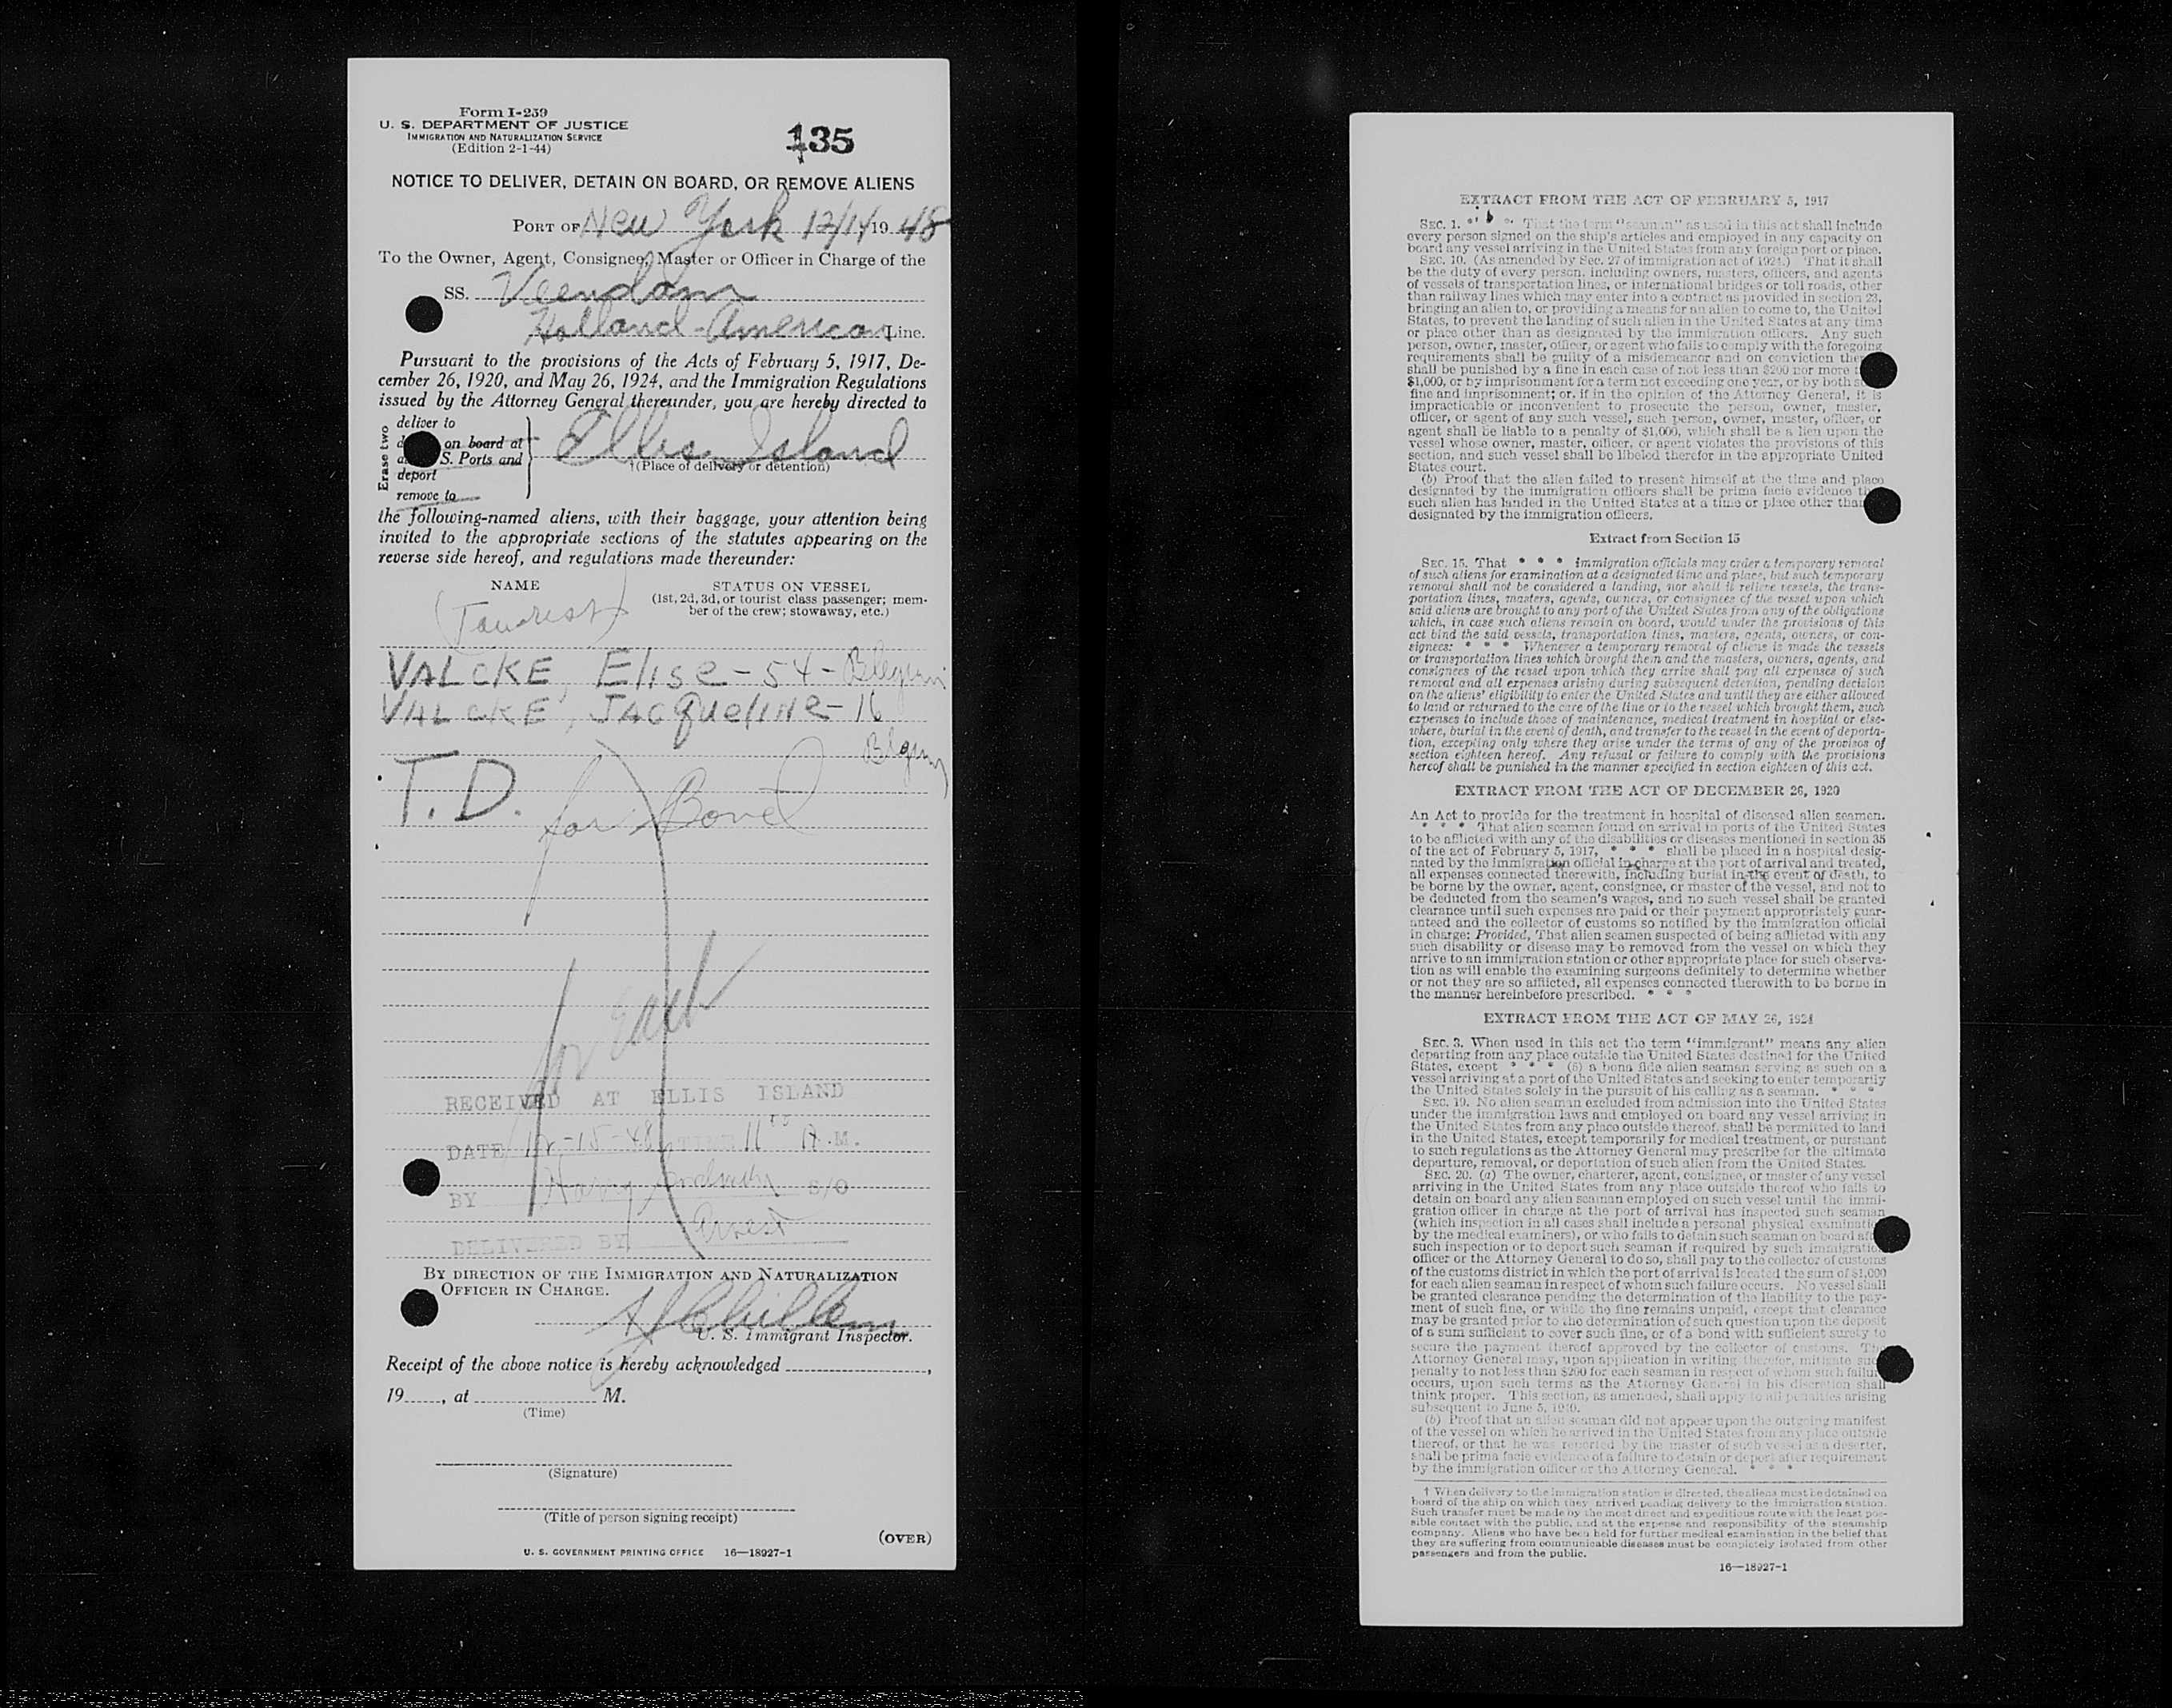 Form I-259
U. S. DEPARTMENT OF JUSTICE
IMMIGRATION AND NATURALIZATION SERVICE
(Edition 2-1-44)
135
NOTICE TO DELIVER, DETAIN ON BOARD, OR REMOVE ALIENS
PORT OF New York 12/14/19 48
To the Owner, Agent, Consignee, Master or Officer in Charge of the
SS. Veendam
Holland-America Line.
Pursuant to the provisions of the Acts of February 5, 1917, De-
cember 26, 1920, and May 26, 1924, and the Immigration Regulations
issued by the Attorney General thereunder, you are hereby directed to
Erase two
deliver to
on board at
S. Ports and
deport
remove to
Ellis Island
†(Place of delivery or detention)
the following-named aliens, with their baggage, your attention being
invited to the appropriate sections of the statutes appearing on the
reverse side hereof, and regulations made thereunder:
NAME
STATUS ON VESSEL
(1st, 2d, 3d, or tourist class passenger; mem-
ber of the crew; stowaway, etc.)
(Tourist)
VALCKE, Elise - 54 -
VALCKE, JACqueline - 16
T. D. for Bond
for each
RECEIVED AT ELLIS ISLAND
DATE 12-15-48 TIME 11 A.M.
BY Harry S/O
DELIVERED BY
BY DIRECTION OF THE IMMIGRATION AND NATURALIZATION
OFFICER IN CHARGE.
U. S. Immigrant Inspector.
Receipt of the above notice is hereby acknowledged ,
19 , at M.
(Time)
(Signature)
(Title of person signing receipt)
(OVER)
U. S. GOVERNMENT PRINTING OFFICE 16—18927-1
EXTRACT FROM THE ACT OF FEBRUARY 5, 1917
SEC. 1. * * * That the term "seaman" as used in this act shall include
every person signed on the ship's articles and employed in any capacity on
board any vessel arriving in the United States from any foreign port or place.
SEC. 10. (As amended by Sec. 27 of immigration act of 1924.) That it shall
be the duty of every person, including owners, masters, officers, and agents
of vessels of transportation lines, or international bridges or toll roads, other
than railway lines which may enter into a contract as provided in section 23,
bringing an alien to, or providing a means for an alien to come to, the United
States, to prevent the landing of such alien in the United States at any time
or place other than as designated by the immigration officers. Any such
person, owner, master, officer, or agent who fails to comply with the foregoing
requirements shall be guilty of a misdemeanor and on conviction
shall be punished by a fine in each case of not less than $200 nor more
$1,000, or by imprisonment for a term not exceeding one year, or by both
fine and imprisonment; or, if in the opinion of the Attorney General, it is
impracticable or inconvenient to prosecute the person, owner, master,
officer, or agent of any such vessel, such person, owner, master, officer, or
agent shall be liable to a penalty of $1,000, which shall be a lien upon the
vessel whose owner, master, officer, or agent violates the provisions of this
section, and such vessel shall be libeled therefor in the appropriate United
States court.
(b) Proof that the alien failed to present himself at the time and place
designated by the immigration officers shall be prima facie evidence
such alien has landed in the United States at a time or place other than
designated by the immigration officers.
Extract from Section 15
SEC. 15. That * * * immigration officials may order a temporary removal
of such aliens for examination at a designated time and place, but such temporary
removal shall not be considered a landing, nor shall it relieve vessels, the trans-
portation lines, masters, agents, owners, or consignees of the vessel upon which
said aliens are brought to any port of the United States from any of the obligations
which, in case such aliens remain on board, would under the provisions of this
act bind the said vessels, transportation lines, masters, agents, owners, or con-
signees: * * * Whenever a temporary removal of aliens is made the vessels
or transportation lines which brought them and the masters, owners, agents, and
consignees of the vessel upon which they arrive shall pay all expenses of such
removal and all expenses arising during subsequent detention, pending decision
on the aliens' eligibility to enter the United States and until they are either allowed
to land or returned to the care of the line or to the vessel which brought them, such
expenses to include those of maintenance, medical treatment in hospital or else-
where, burial in the event of death, and transfer to the vessel in the event of deporta-
tion, excepting only where they arise under the terms of any of the provisos of
section eighteen hereof. Any refusal or failure to comply with the provisions
hereof shall be punished in the manner specified in section eighteen of this act.
EXTRACT FROM THE ACT OF DECEMBER 26, 1920
An Act to provide for the treatment in hospital of diseased alien seamen.
* * * That alien seamen found on arrival in ports of the United States
to be afflicted with any of the disabilities or diseases mentioned in section 35
of the act of February 5, 1917, * * * shall be placed in a hospital desig-
nated by the immigration official in charge at the port of arrival and treated,
all expenses connected therewith, including burial in the event of death, to
be borne by the owner, agent, consignee, or master of the vessel, and not to
be deducted from the seamen's wages, and no such vessel shall be granted
clearance until such expenses are paid or their payment appropriately guar-
anteed and the collector of customs so notified by the immigration official
in charge: Provided, That alien seamen suspected of being afflicted with any
such disability or disease may be removed from the vessel on which they
arrive to an immigration station or other appropriate place for such observa-
tion as will enable the examining surgeons definitely to determine whether
or not they are so afflicted, all expenses connected therewith to be borne in
the manner hereinbefore prescribed. * * *
EXTRACT FROM THE ACT OF MAY 26, 1924
SEC. 3. When used in this act the term "immigrant" means any alien
departing from any place outside the United States destined for the United
States, except * * * (5) a bona fide alien seaman serving as such on a
vessel arriving at a port of the United States and seeking to enter temporarily
the United States solely in the pursuit of his calling as a seaman. * * *
SEC. 19. No alien seaman excluded from admission into the United States
under the immigration laws and employed on board any vessel arriving in
the United States from any place outside thereof, shall be permitted to land
in the United States, except temporarily for medical treatment, or pursuant
to such regulations as the Attorney General may prescribe for the ultimate
departure, removal, or deportation of such alien from the United States.
SEC. 20. (a) The owner, charterer, agent, consignee, or master of any vessel
arriving in the United States from any place outside thereof who fails to
detain on board any alien seaman employed on such vessel until the immi-
gration officer in charge at the port of arrival has inspected such seaman
(which inspection in all cases shall include a personal physical examinatio
by the medical examiners), or who fails to detain such seaman on board
such inspection or to deport such seaman if required by such immigratio
officer or the Attorney General to do so, shall pay to the collector of customs
of the customs district in which the port of arrival is located the sum of $1,000
for each alien seaman in respect of whom such failure occurs. No vessel shall
be granted clearance pending the determination of the liability to the pay-
ment of such fine, or while the fine remains unpaid, except that clearance
may be granted prior to the determination of such question upon the deposit
of a sum sufficient to cover such fine, or of a bond with sufficient surety to
secure the payment thereof approved by the collector of customs. The
Attorney General may, upon application in writing therefor, mitigate
penalty to not less than $200 for each seaman in respect of whom such failure
occurs, upon such terms as the Attorney General in his discretion shall
think proper. This section, as amended, shall apply to all penalties arising
subsequent to June 5, 1940.
(b) Proof that an alien seaman did not appear upon the outgoing manifest
of the vessel on which he arrived in the United States from any place outside
thereof, or that he was reported by the master of such vessel as a deserter,
shall be prima facie evidence of a failure to detain or deport after requirement
by the immigration officer or the Attorney General. * * *
† When delivery to the immigration station is directed, the aliens must be detained on
board of the ship on which they arrived pending delivery to the immigration station.
Such transfer must be made by the most direct and expeditious route with the least pos-
sible contact with the public, and at the expense and responsibility of the steamship
company. Aliens who have been held for further medical examination in the belief that
they are suffering from communicable diseases must be completely isolated from other
passengers and from the public.
16—18927-1